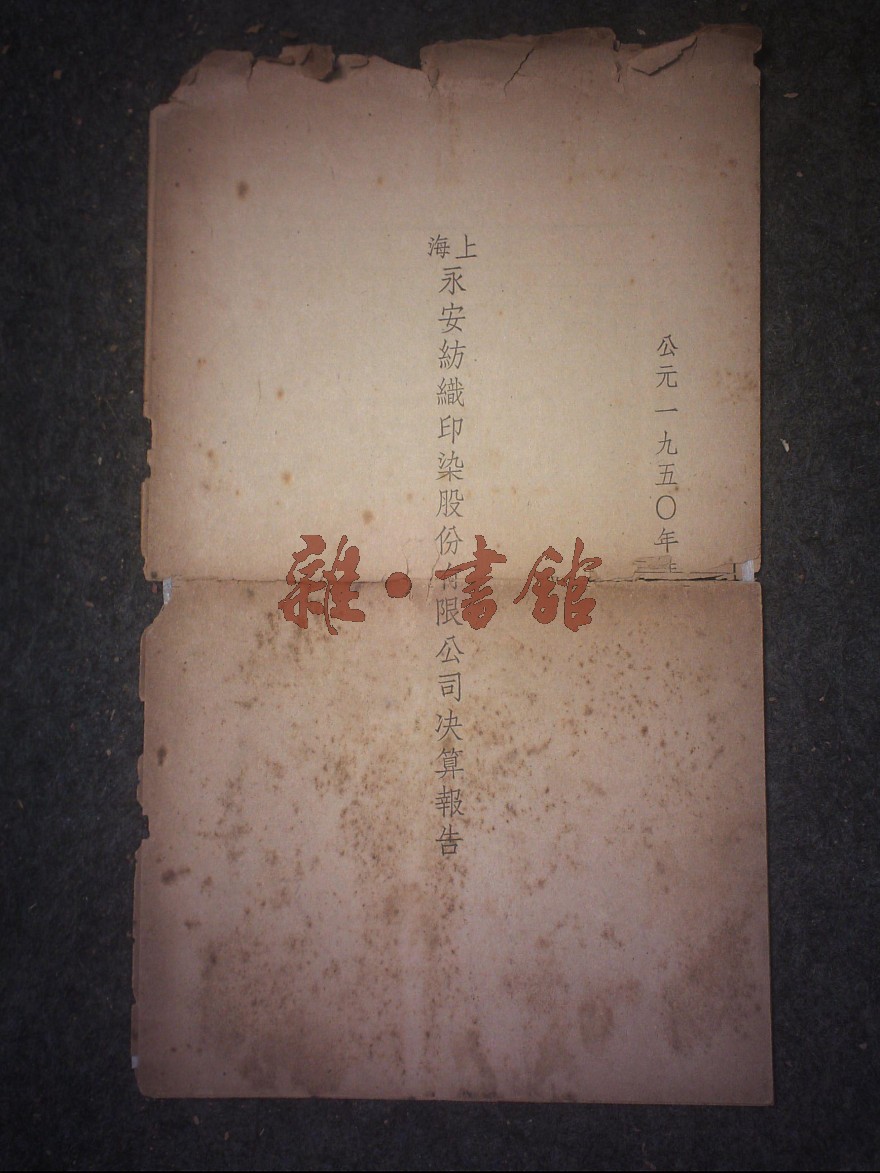 公元一九五〇年
上海永安紡織印染股份有限公司決算報告
雜·書館